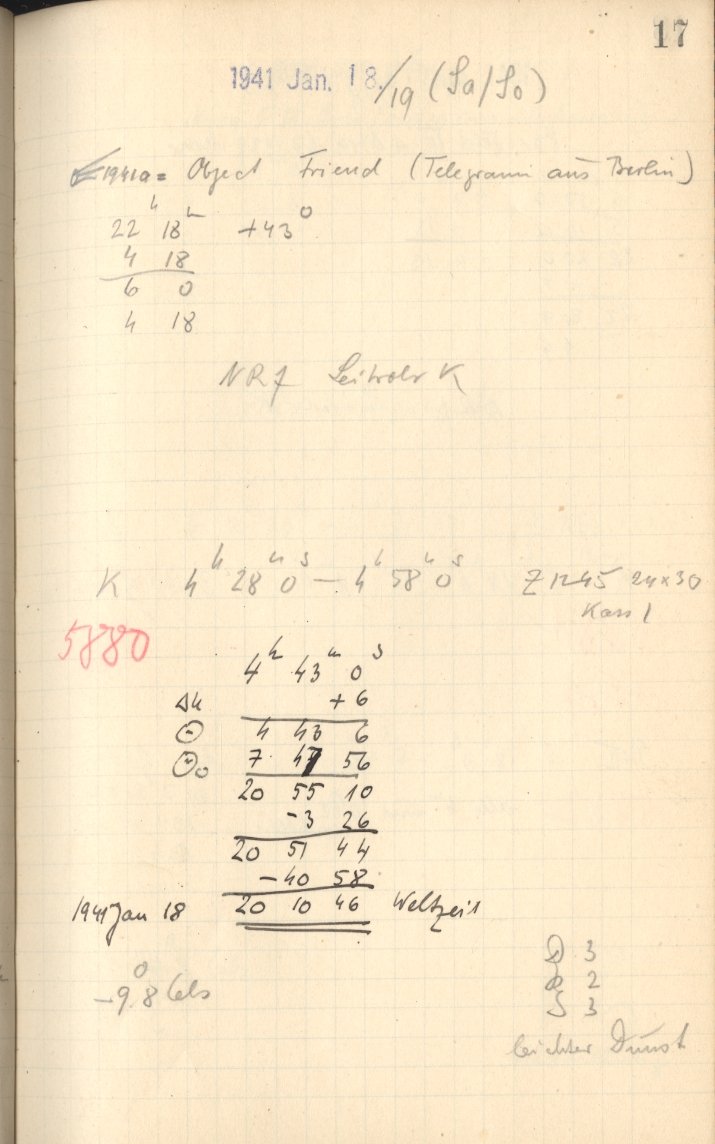 17
1941 Jan. 18./19 (Sa/So)
1941a = Object Friend (Telegramm aus Berlin)
22ʰ 18ᵐ +43°
4 18
6 0
4 18
NR7 Leitrohr K
K 4ʰ 28ᵐ 0ˢ — 4ʰ 58ᵐ 0ˢ Z 1245 24x30
Kass 1
5880
4ʰ 43ᵐ 0ˢ
Δu +6
⊙ 4 43 6
⊙₀ 7 47 56
20 55 10
-3 26
20 51 44
-40 58
1941 Jan 18 20 10 46 Weltzeit
-9°8 Cels
D 3
R 2
S 3
leichter Dunst